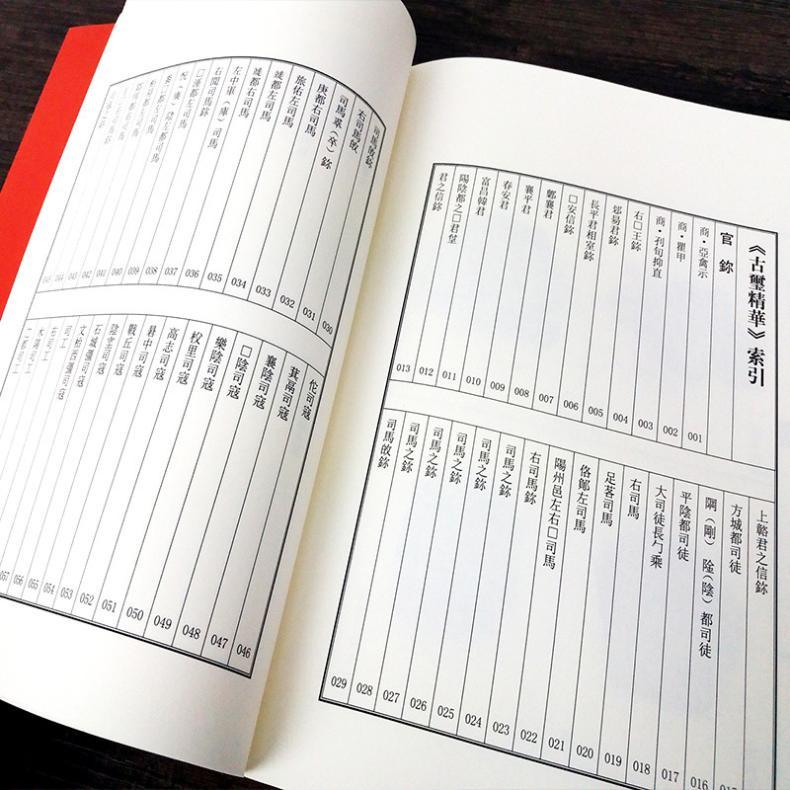 《古璽精華》索引
官鉨
商·亞禽示 001
商·瞿甲 002
商· 003
右□王鉨 004
易君鉨 005
長平君相室鉨 006
□安信鉨 007
襄君 008
襄平君 009
春安君 010
富昌韓君 011
陽陰都之□君 012
君之信鉨 013
上輅君之信鉨
方城都司徒 015
隅（剛）（陰）都司徒 016
平陰都司徒 017
大司徒長勹乘 018
右司馬 019
足茖司馬 020
佫郿左司馬 021
陽州邑左右□司馬 022
右司馬鉨 023
司馬之鉨 024
司馬之鉨 025
司馬之鉨 026
司馬之鉨 027
司馬之鉨 028
司馬敀鉨 029
司馬敀鉨 030
右司馬敀 031
司馬（卒）鉨 032
庚都右司馬 033
旅佑左司馬 034
都左司馬 035
都右司馬 036
左中軍（庫）司馬 037
右聞司馬鉨 038
都左司馬 039
040
041
042
043
044
045
佗司寇 046
萁鬲司寇 047
襄陰司寇 048
□陰司寇 049
樂陰司寇 050
杈里司寇 051
高志司寇 052
中司寇 053
戰丘司寇 054
司寇 055
石城彌司寇 056
文枱西彌司寇 057
司工
司工
司工
司工